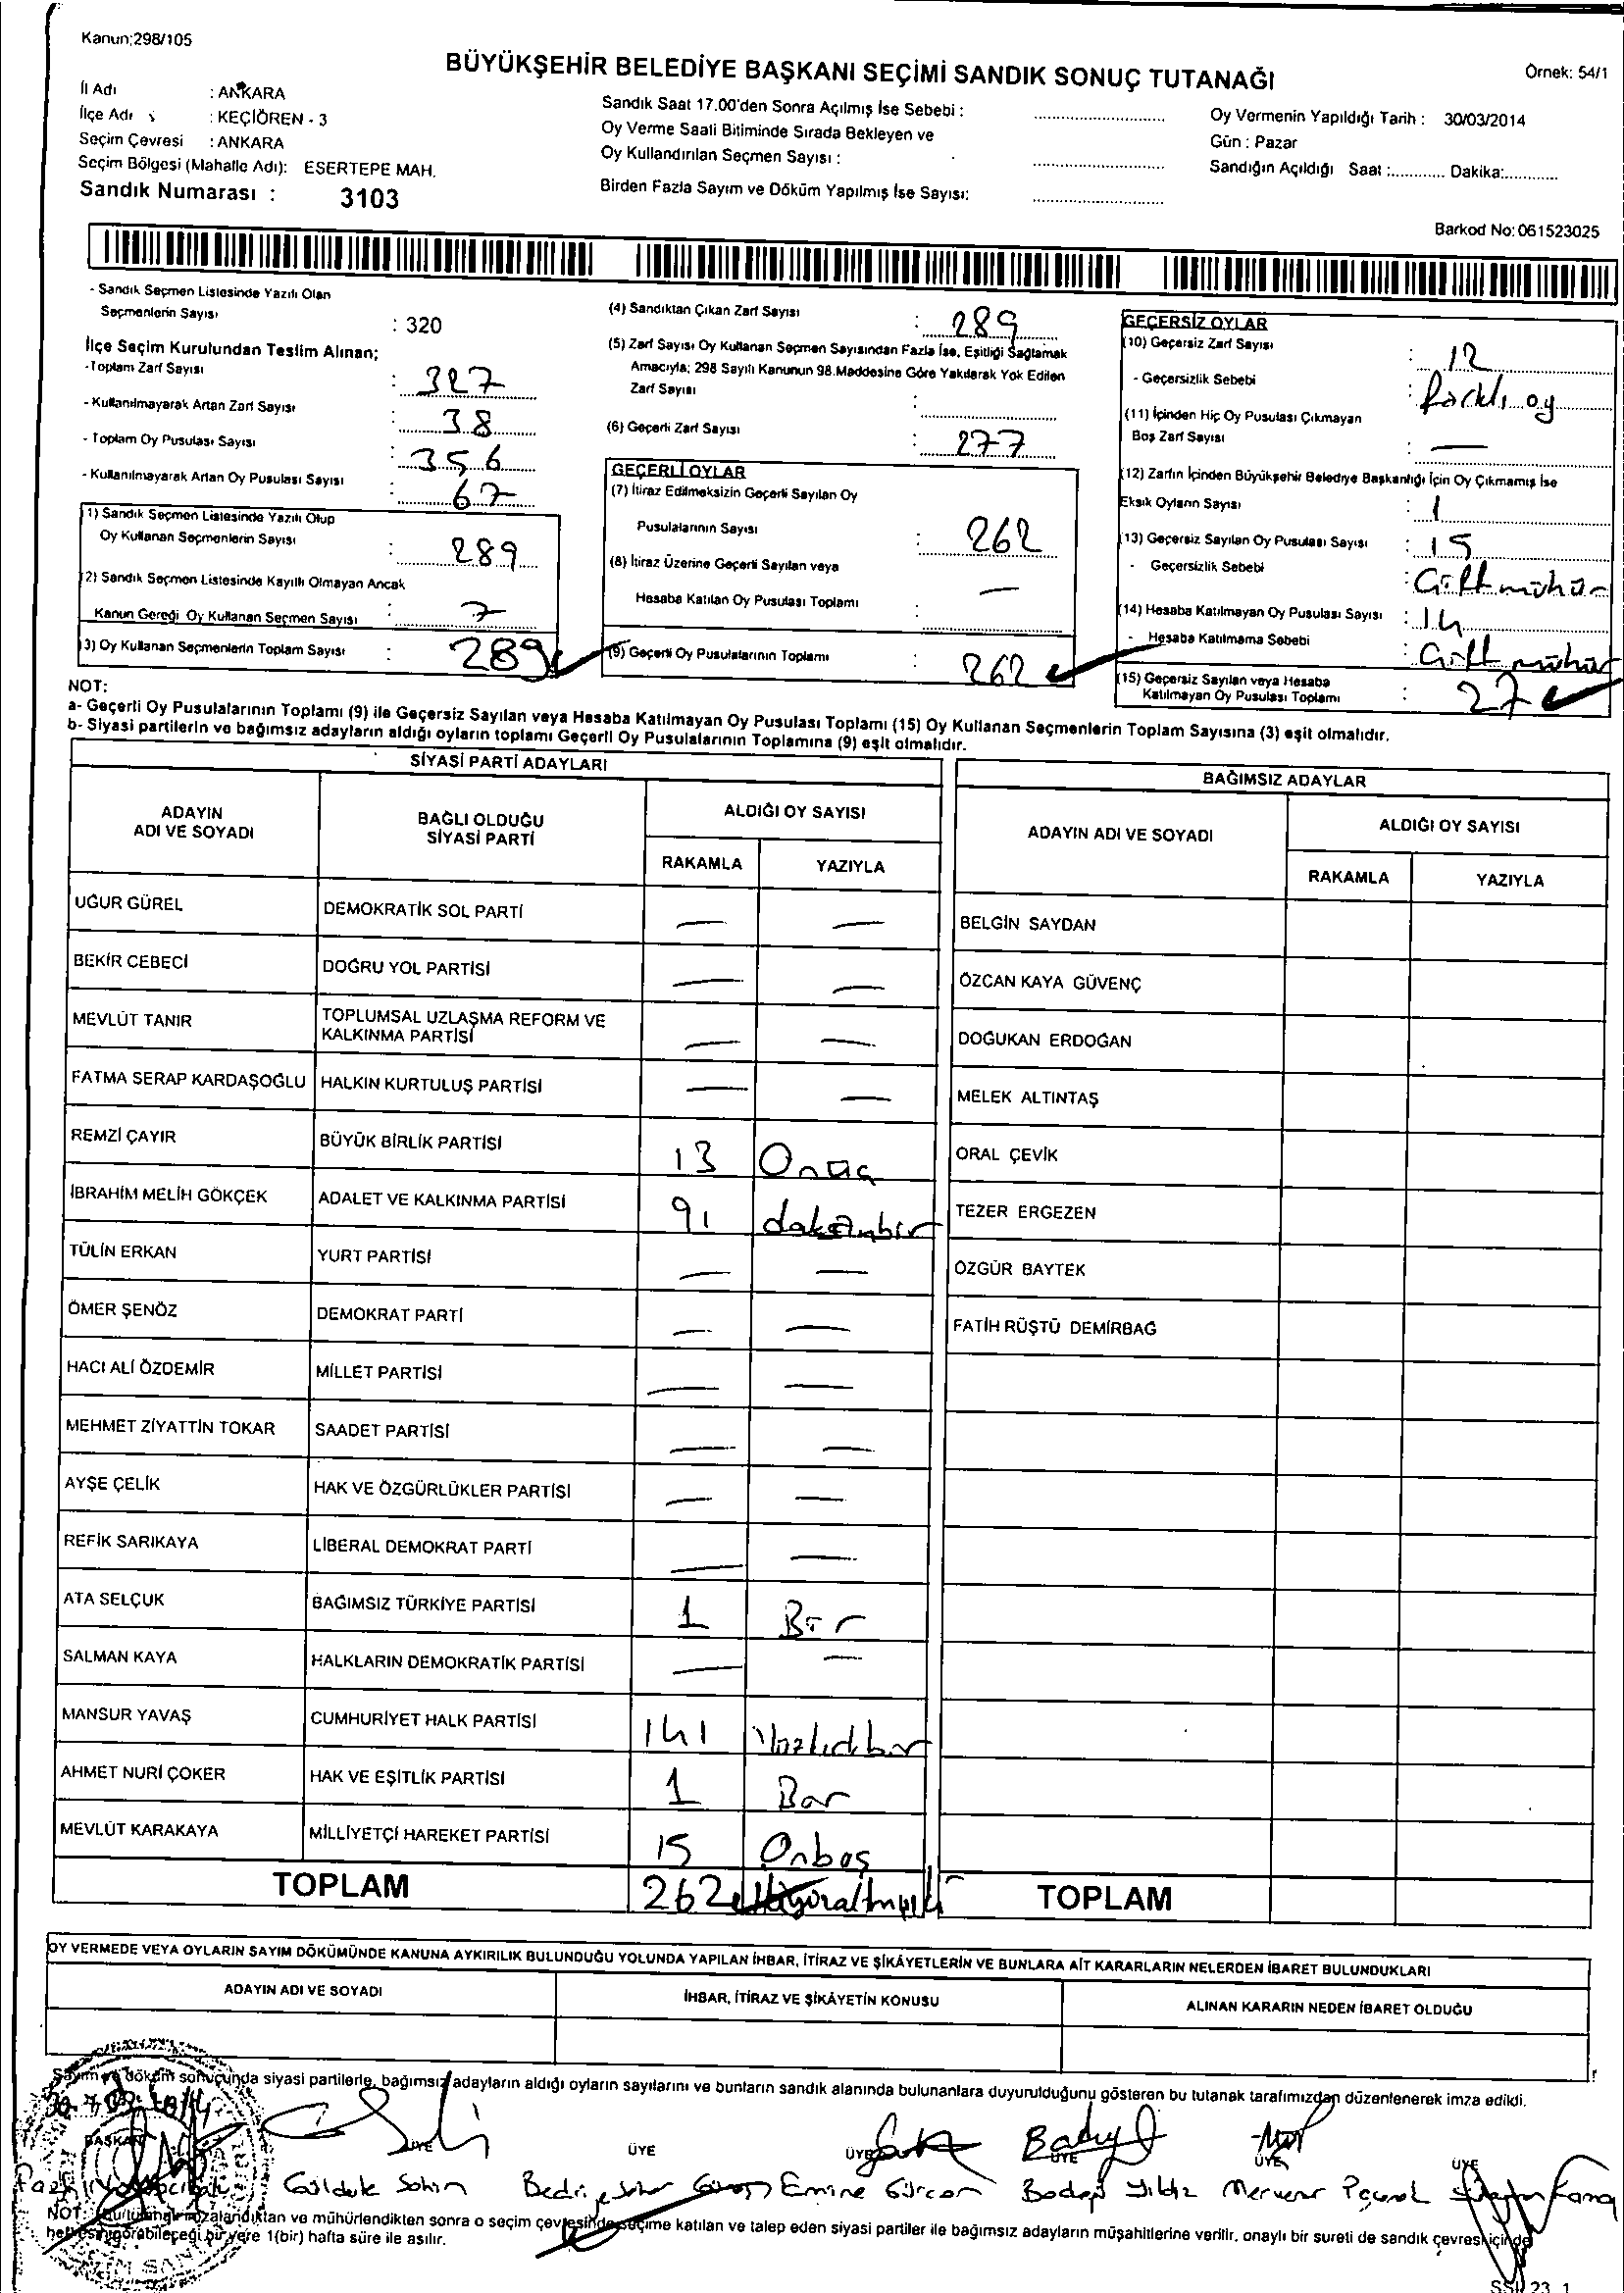 Kanun;298/105
BÜYÜKŞEHİR BELEDİYE BAŞKANI SEÇİMİ SANDIK SONUÇ TUTANAĞI
Örnek: 54/1
İl Adı : ANKARA
İlçe Adı : KEÇİÖREN - 3
Seçim Çevresi : ANKARA
Seçim Bölgesi (Mahalle Adı): ESERTEPE MAH.
Sandık Numarası : 3103
Sandık Saat 17.00'den Sonra Açılmış İse Sebebi :
Oy Verme Saati Bitiminde Sırada Bekleyen ve
Oy Kullandırılan Seçmen Sayısı :
Birden Fazla Sayım ve Döküm Yapılmış İse Sayısı:
Oy Vermenin Yapıldığı Tarih : 30/03/2014
Gün : Pazar
Sandığın Açıldığı Saat :........... Dakika:...........
Barkod No: 061523025
- Sandık Seçmen Listesinde Yazılı Olan
Seçmenlerin Sayısı : 320
İlçe Seçim Kurulundan Teslim Alınan;
-Toplam Zarf Sayısı : 327
- Kullanılmayarak Artan Zarf Sayısı : 38
- Toplam Oy Pusulası Sayısı : 356
- Kullanılmayarak Artan Oy Pusulası Sayısı : 67
(1) Sandık Seçmen Listesinde Yazılı Olup
Oy Kullanan Seçmenlerin Sayısı : 289
(2) Sandık Seçmen Listesinde Kayıtlı Olmayan Ancak
Kanun Gereği Oy Kullanan Seçmen Sayısı : 7
(3) Oy Kullanan Seçmenlerin Toplam Sayısı : 289
(4) Sandıktan Çıkan Zarf Sayısı : 289
(5) Zarf Sayısı Oy Kullanan Seçmen Sayısından Fazla İse, Eşitliği Sağlamak
Amacıyla; 298 Sayılı Kanunun 98.Maddesine Göre Yakılarak Yok Edilen
Zarf Sayısı :
(6) Geçerli Zarf Sayısı : 277
GEÇERLİ OYLAR
(7) İtiraz Edilmeksizin Geçerli Sayılan Oy
Pusulalarının Sayısı : 262
(8) İtiraz Üzerine Geçerli Sayılan veya
Hesaba Katılan Oy Pusulası Toplamı : —
(9) Geçerli Oy Pusulalarının Toplamı : 262
GEÇERSİZ OYLAR
(10) Geçersiz Zarf Sayısı : 12
- Geçersizlik Sebebi : farklı oy
(11) İçinden Hiç Oy Pusulası Çıkmayan
Boş Zarf Sayısı : —
(12) Zarfın İçinden Büyükşehir Belediye Başkanlığı İçin Oy Çıkmamış İse
Eksik Oyların Sayısı : 1
(13) Geçersiz Sayılan Oy Pusulası Sayısı : 15
- Geçersizlik Sebebi : Çift mühür
(14) Hesaba Katılmayan Oy Pusulası Sayısı : 14
- Hesaba Katılmama Sebebi : Çift mühür
(15) Geçersiz Sayılan veya Hesaba
Katılmayan Oy Pusulası Toplamı : 27
NOT:
a- Geçerli Oy Pusulalarının Toplamı (9) ile Geçersiz Sayılan veya Hesaba Katılmayan Oy Pusulası Toplamı (15) Oy Kullanan Seçmenlerin Toplam Sayısına (3) eşit olmalıdır.
b- Siyasi partilerin ve bağımsız adayların aldığı oyların toplamı Geçerli Oy Pusulalarının Toplamına (9) eşit olmalıdır.
SİYASİ PARTİ ADAYLARI
ADAYIN ADI VE SOYADI
BAĞLI OLDUĞU SİYASİ PARTİ
ALDIĞI OY SAYISI
RAKAMLA YAZIYLA
UĞUR GÜREL DEMOKRATİK SOL PARTİ — —
BEKİR CEBECİ DOĞRU YOL PARTİSİ — —
MEVLÜT TANIR TOPLUMSAL UZLAŞMA REFORM VE KALKINMA PARTİSİ — —
FATMA SERAP KARDAŞOĞLU HALKIN KURTULUŞ PARTİSİ — —
REMZİ ÇAYIR BÜYÜK BİRLİK PARTİSİ 13 Onüç
İBRAHİM MELİH GÖKÇEK ADALET VE KALKINMA PARTİSİ 91 doksanbir
TÜLİN ERKAN YURT PARTİSİ — —
ÖMER ŞENÖZ DEMOKRAT PARTİ — —
HACI ALİ ÖZDEMİR MİLLET PARTİSİ — —
MEHMET ZİYATTİN TOKAR SAADET PARTİSİ — —
AYŞE ÇELİK HAK VE ÖZGÜRLÜKLER PARTİSİ — —
REFİK SARIKAYA LİBERAL DEMOKRAT PARTİ — —
ATA SELÇUK BAĞIMSIZ TÜRKİYE PARTİSİ 1 Bir
SALMAN KAYA HALKLARIN DEMOKRATİK PARTİSİ — —
MANSUR YAVAŞ CUMHURİYET HALK PARTİSİ 141
AHMET NURİ ÇOKER HAK VE EŞİTLİK PARTİSİ 1 Bir
MEVLÜT KARAKAYA MİLLİYETÇİ HAREKET PARTİSİ 15 Onbeş
TOPLAM 262
BAĞIMSIZ ADAYLAR
ADAYIN ADI VE SOYADI
ALDIĞI OY SAYISI
RAKAMLA YAZIYLA
BELGİN SAYDAN
ÖZCAN KAYA GÜVENÇ
DOĞUKAN ERDOĞAN
MELEK ALTINTAŞ
ORAL ÇEVİK
TEZER ERGEZEN
ÖZGÜR BAYTEK
FATİH RÜŞTÜ DEMİRBAĞ
TOPLAM
OY VERMEDE VEYA OYLARIN SAYIM DÖKÜMÜNDE KANUNA AYKIRILIK BULUNDUĞU YOLUNDA YAPILAN İHBAR, İTİRAZ VE ŞİKÂYETLERİN VE BUNLARA AİT KARARLARIN NELERDEN İBARET BULUNDUKLARI
ADAYIN ADI VE SOYADI
İHBAR, İTİRAZ VE ŞİKÂYETİN KONUSU
ALINAN KARARIN NEDEN İBARET OLDUĞU
Sayım ve döküm sonucunda siyasi partilerle, bağımsız adayların aldığı oyların sayılarını ve bunların sandık alanında bulunanlara duyurulduğunu gösteren bu tutanak tarafımızdan düzenlenerek imza edildi.
BAŞKAN ÜYE ÜYE ÜYE ÜYE ÜYE ÜYE
Emine Gürcan
Yıldız
NOT: mühürlendikten sonra o seçim çevresinde seçime katılan ve talep eden siyasi partiler ile bağımsız adayların müşahitlerine verilir, onaylı bir sureti de sandık çevresi içinde
herkesin görebileceği bir yere 1(bir) hafta süre ile asılır.